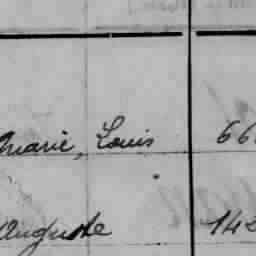 Marie, Louis 66
Auguste 142